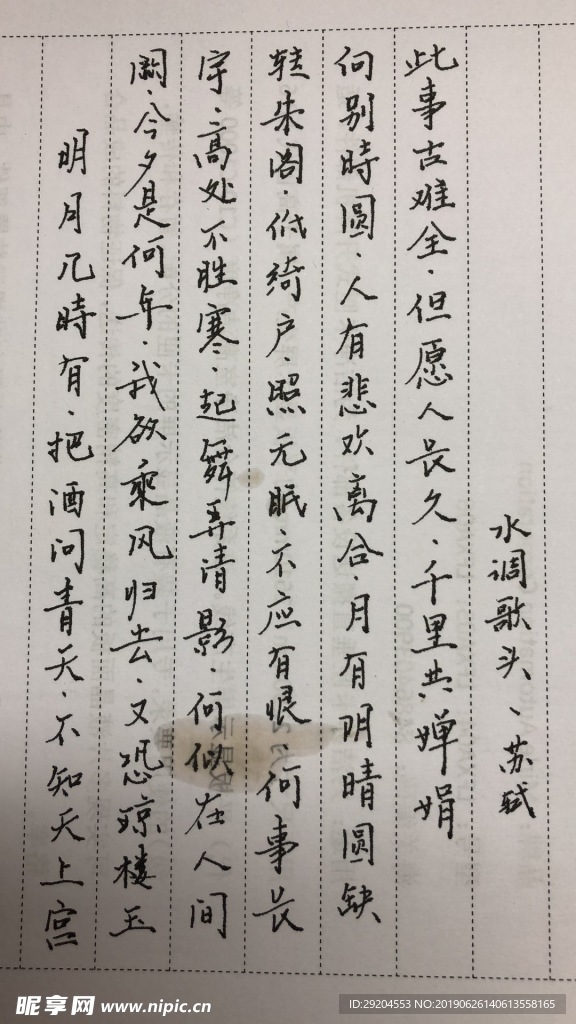 明月几時有、把酒问青天、不知天上宫
阙、今夕是何年、我欲乘风归去、又恐琼楼玉
宇、高处不胜寒、起舞弄清影、何似在人间
转朱阁、低绮户、照无眠、不应有恨、何事长
向别時圆、人有悲欢离合、月有阴晴圆缺
此事古难全、但愿人长久、千里共婵娟
水调歌头、苏轼
昵享网 www.nipic.cn
ID:29204553 NO:20190626140613558165